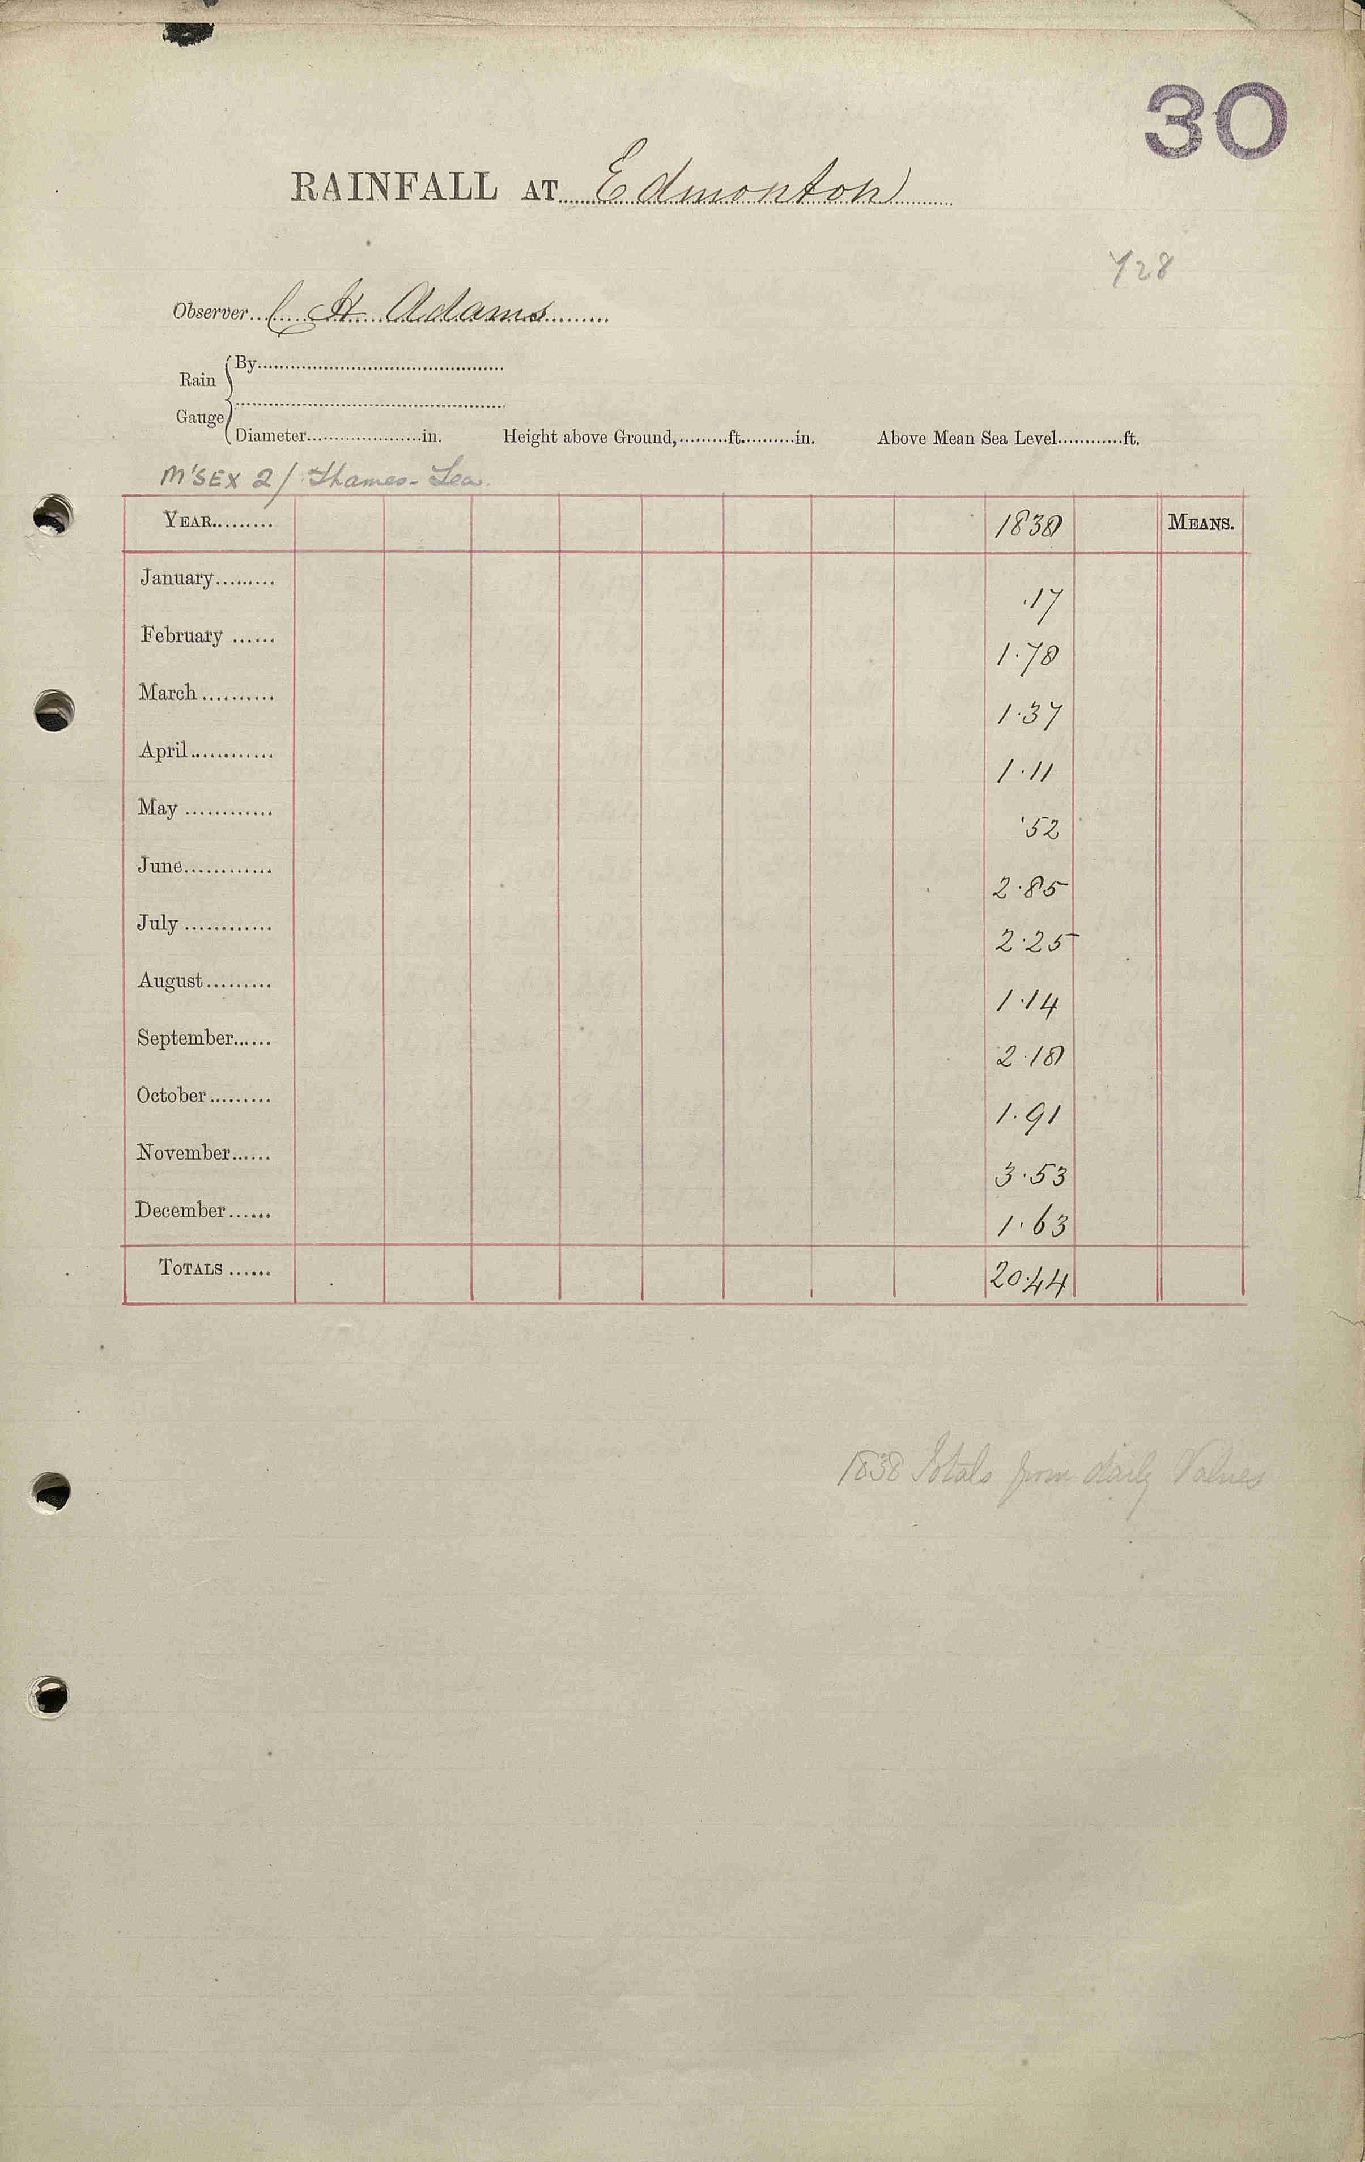 30
RAINFALL AT Edmonton
Y28
Observer C H Adams
Rain Gauge
By
Diameter in. Height above Ground, ft. in. Above Mean Sea Level ft.
M'SEX 2/ Thames-Lea.
YEAR 1838 MEANS.
January .17
February 1.78
March 1.37
April 1.11
May .52
June 2.85
July 2.25
August 1.14
September 2.18
October 1.91
November 3.53
December 1.63
TOTALS 20.44
1838 Totals from daily Values